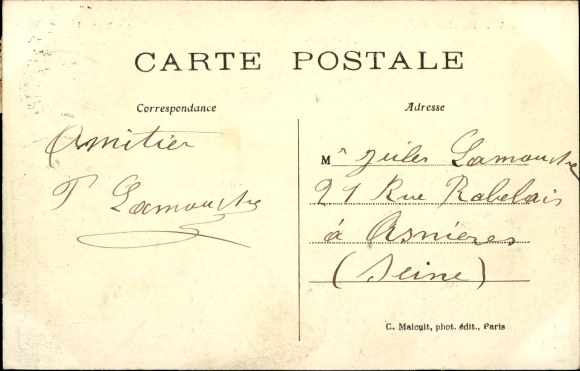 CARTE POSTALE
Correspondance
Adresse
Amitier
P Lamoustre
Mr Jules Lamoustre
21 Rue Rabelais
à Asnieres
(Seine)
C. Malcuit, phot. édit., Paris